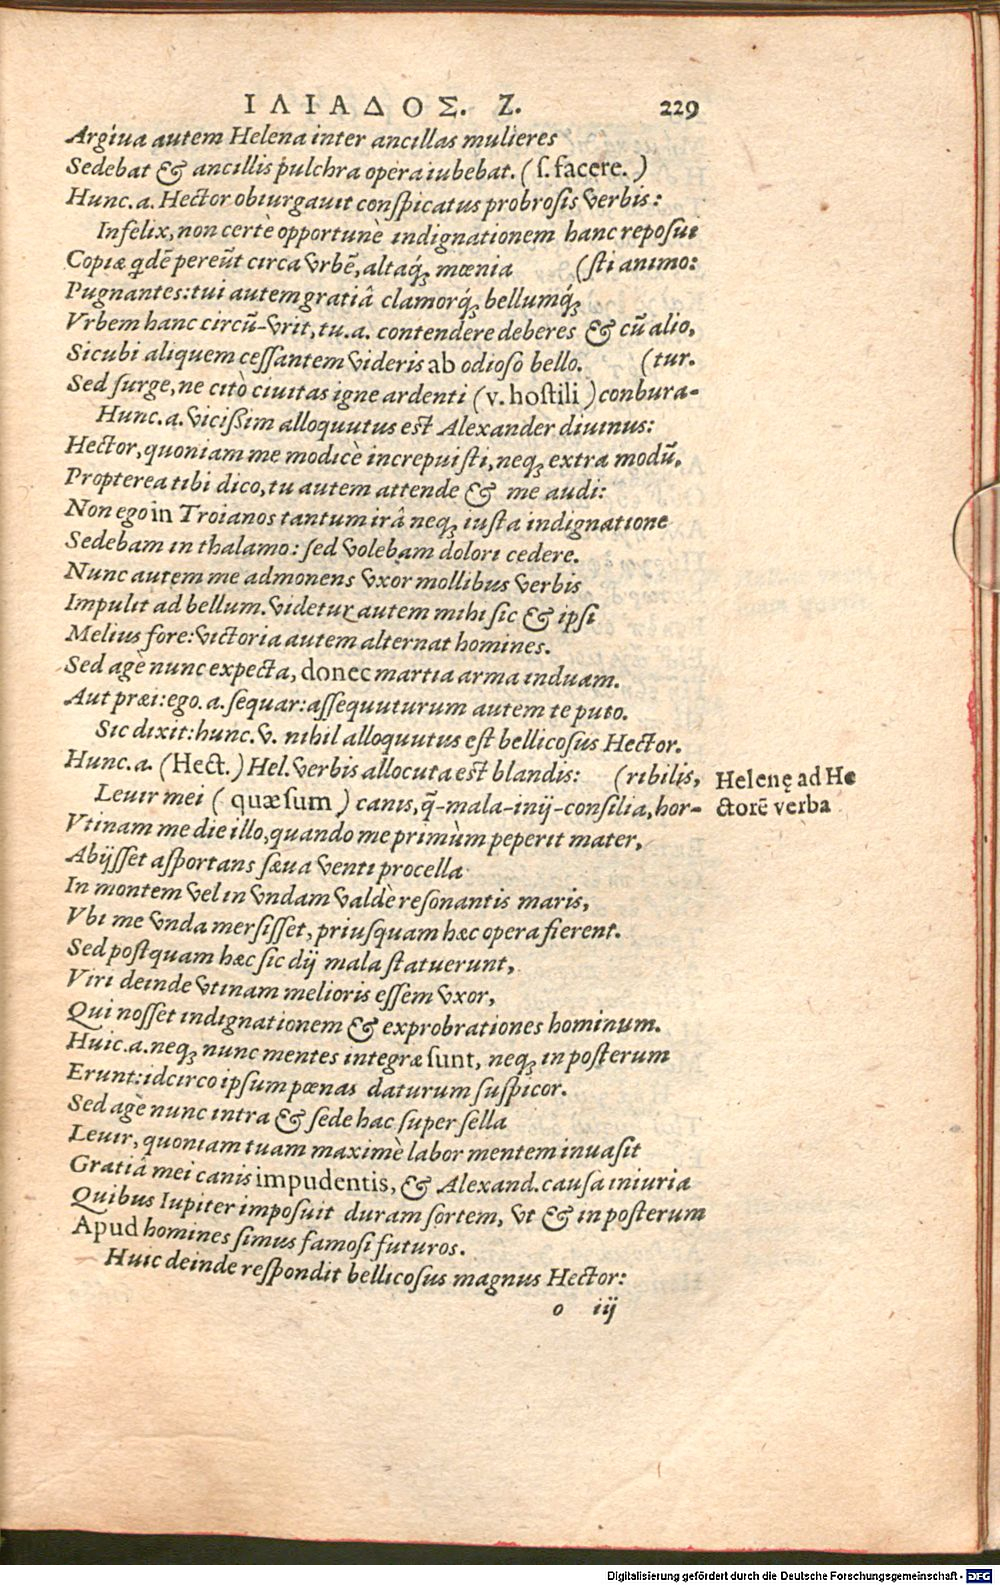 ΙΛΙΑΔΟΣ. Ζ. 229
Argiua autem Helena inter ancillas mulieres
Sedebat & ancillis pulchra opera iubebat. (s. facere.)
Hunc. a. Hector obiurgauit conspicatus probrosis verbis:
Infelix, non certè opportunè indignationem hanc reposui
Copiæ qdẽ pereũt circa vrbẽ, altaq́; mœnia (sti animo:
Pugnantes: tui autem gratiâ clamorq́; bellumq́;
Vrbem hanc circũ-vrit, tu. a. contendere deberes & cũ alio,
Sicubi aliquem cessantem videris ab odioso bello. (tur.
Sed surge, ne citò ciuitas igne ardenti (v. hostili) conbura-
Hunc. a. vicißim alloquutus est Alexander diuinus:
Hector, quoniam me modicè increpuisti, neq; extra modũ,
Propterea tibi dico, tu autem attende & me audi:
Non ego in Troianos tantum irâ neq; iusta indignatione
Sedebam in thalamo: sed volebam dolori cedere.
Nunc autem me admonens vxor mollibus verbis
Impulit ad bellum. videtur autem mihi sic & ipsi
Melius fore: victoria autem alternat homines.
Sed agè nunc expecta, donec martia arma induam.
Aut præi: ego. a. sequar: assequuturum autem te puto.
Sic dixit: hunc. v. nihil alloquutus est bellicosus Hector.
Hunc. a. (Hect.) Hel. verbis allocuta est blandis: (ribilis,
Leuir mei (quæsum) canis, q̃-mala-inij-consilia, hor-
Helenę ad He
ctorẽ verba
Vtinam me die illo, quando me primùm peperit mater,
Abijsset asportans sæua venti procella
In montem vel in vndam valdè resonantis maris,
Vbi me vnda mersisset, priusquam hæc opera fierent.
Sed postquam hæc sic dij mala statuerunt,
Viri deinde vtinam melioris essem vxor,
Qui nosset indignationem & exprobrationes hominum.
Huic. a. neq; nunc mentes integræ sunt, neq; in posterum
Erunt: idcirco ipsum pœnas daturum suspicor.
Sed agè nunc intra & sede hac super sella
Leuir, quoniam tuam maximè labor mentem inuasit
Gratiâ mei canis impudentis, & Alexand. causa iniuria
Quibus Iupiter imposuit duram sortem, vt & in posterum
Apud homines simus famosi futuros.
Huic deinde respondit bellicosus magnus Hector:
o iij
Digitalisierung gefördert durch die Deutsche Forschungsgemeinschaft - DFG